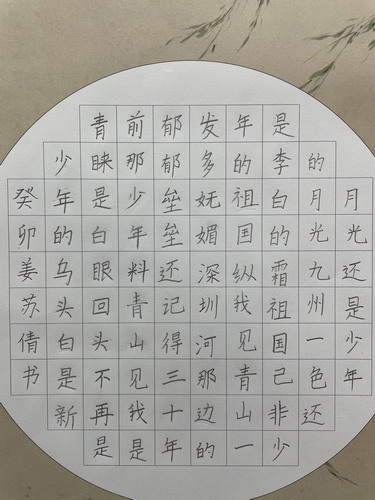 月光还是少年
的月光九州一色还
是李白的霜祖国己非少
年的祖国纵我见青山一
发多妩媚深圳河那边的
郁郁垒垒还记得三十年
前那少年料青山见我是
青睐是白眼回头不再是
少年的乌头白是新
癸卯姜苏倩书